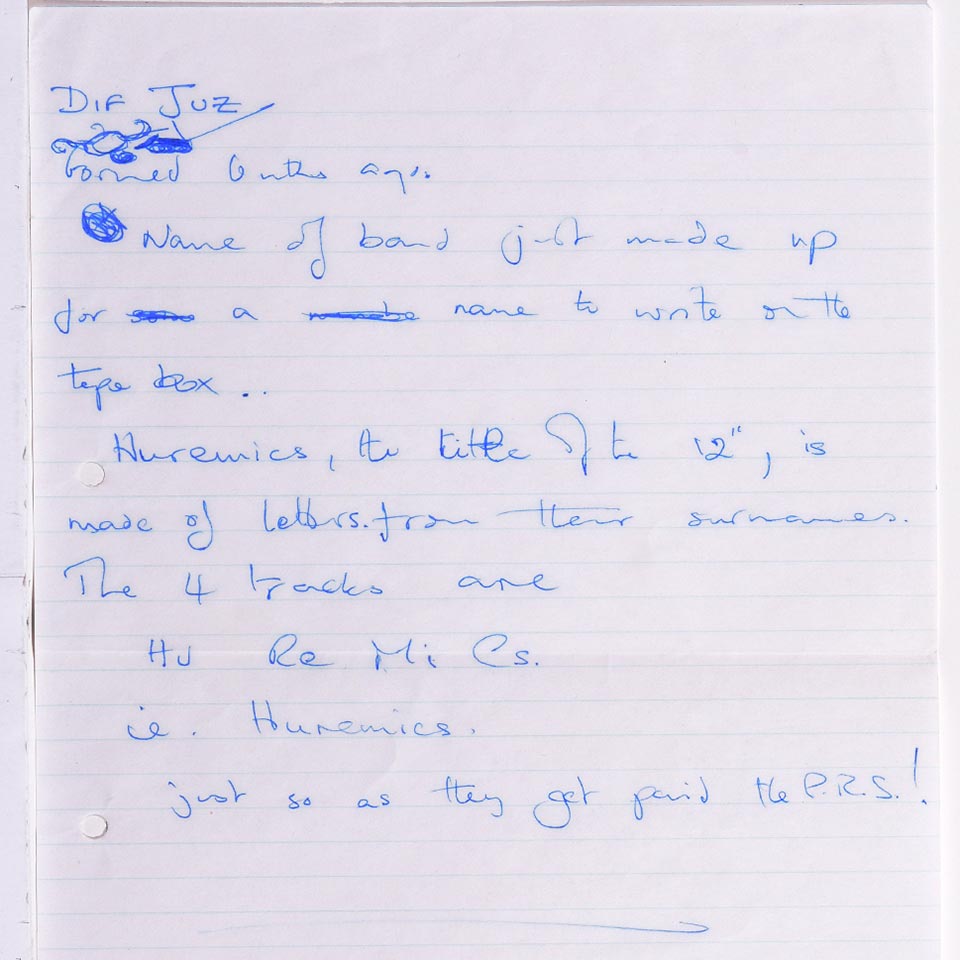 DIF JUZ
formed 6 mths ago.
Name of band just made up
for a name to write on the
tape box ..
Huremics, the title of the 12", is
made of letters from their surnames.
The 4 tracks are
Hu Re Mi Cs.
ie. Huremics.
just so as they get paid the P.R.S.!